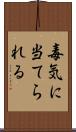 毒気に
当てら
れる